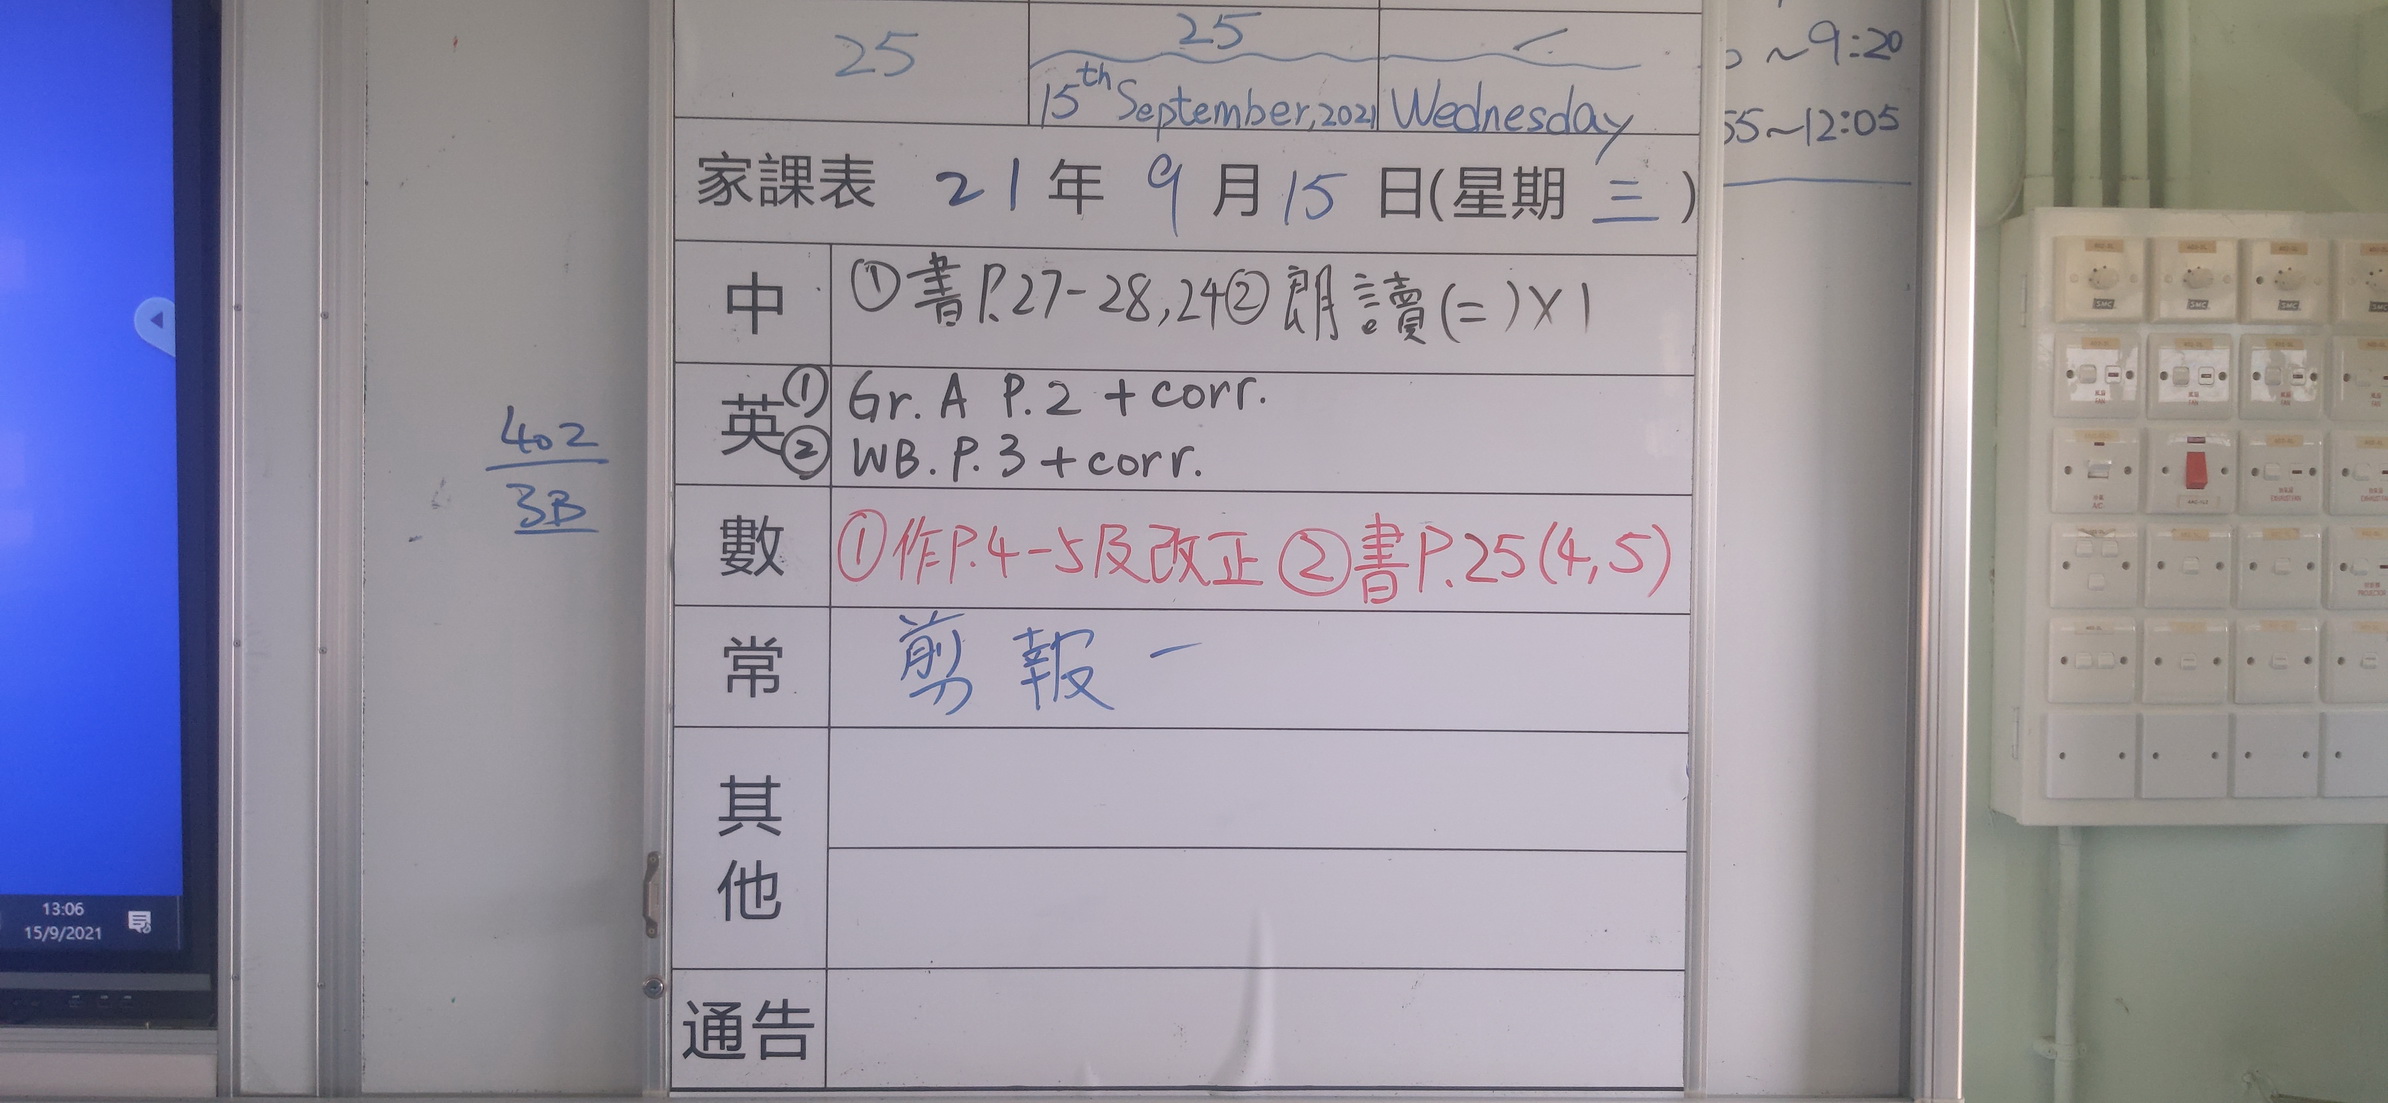 25
25
15th September, 2021 Wednesday
~9:20
55~12:05
家課表 21年 9月15日(星期三)
中 ①書P.27-28,24②朗讀(二)X1
英① Gr. A P.2 + corr.
② WB. P.3 + corr.
數 ①作P.4-5及改正②書P.25(4,5)
常 剪報一
其他
通告
402
3B
13:06
15/9/2021